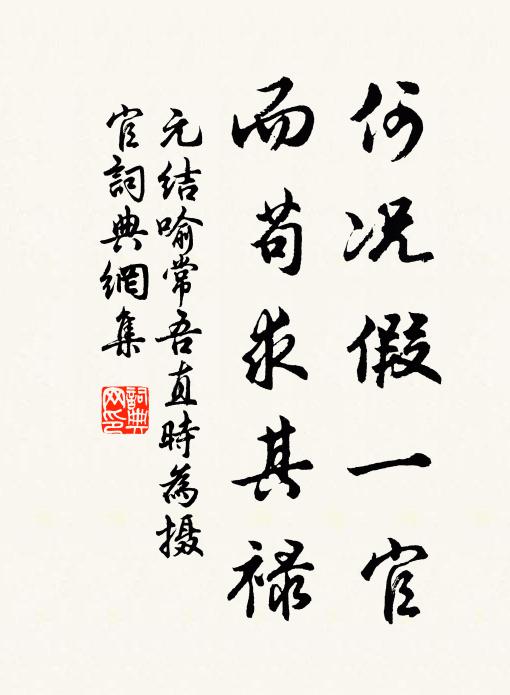 何况假一官
而苟求其禄
元结喻常吾直時為摄
官詞典網集
詞典
网印